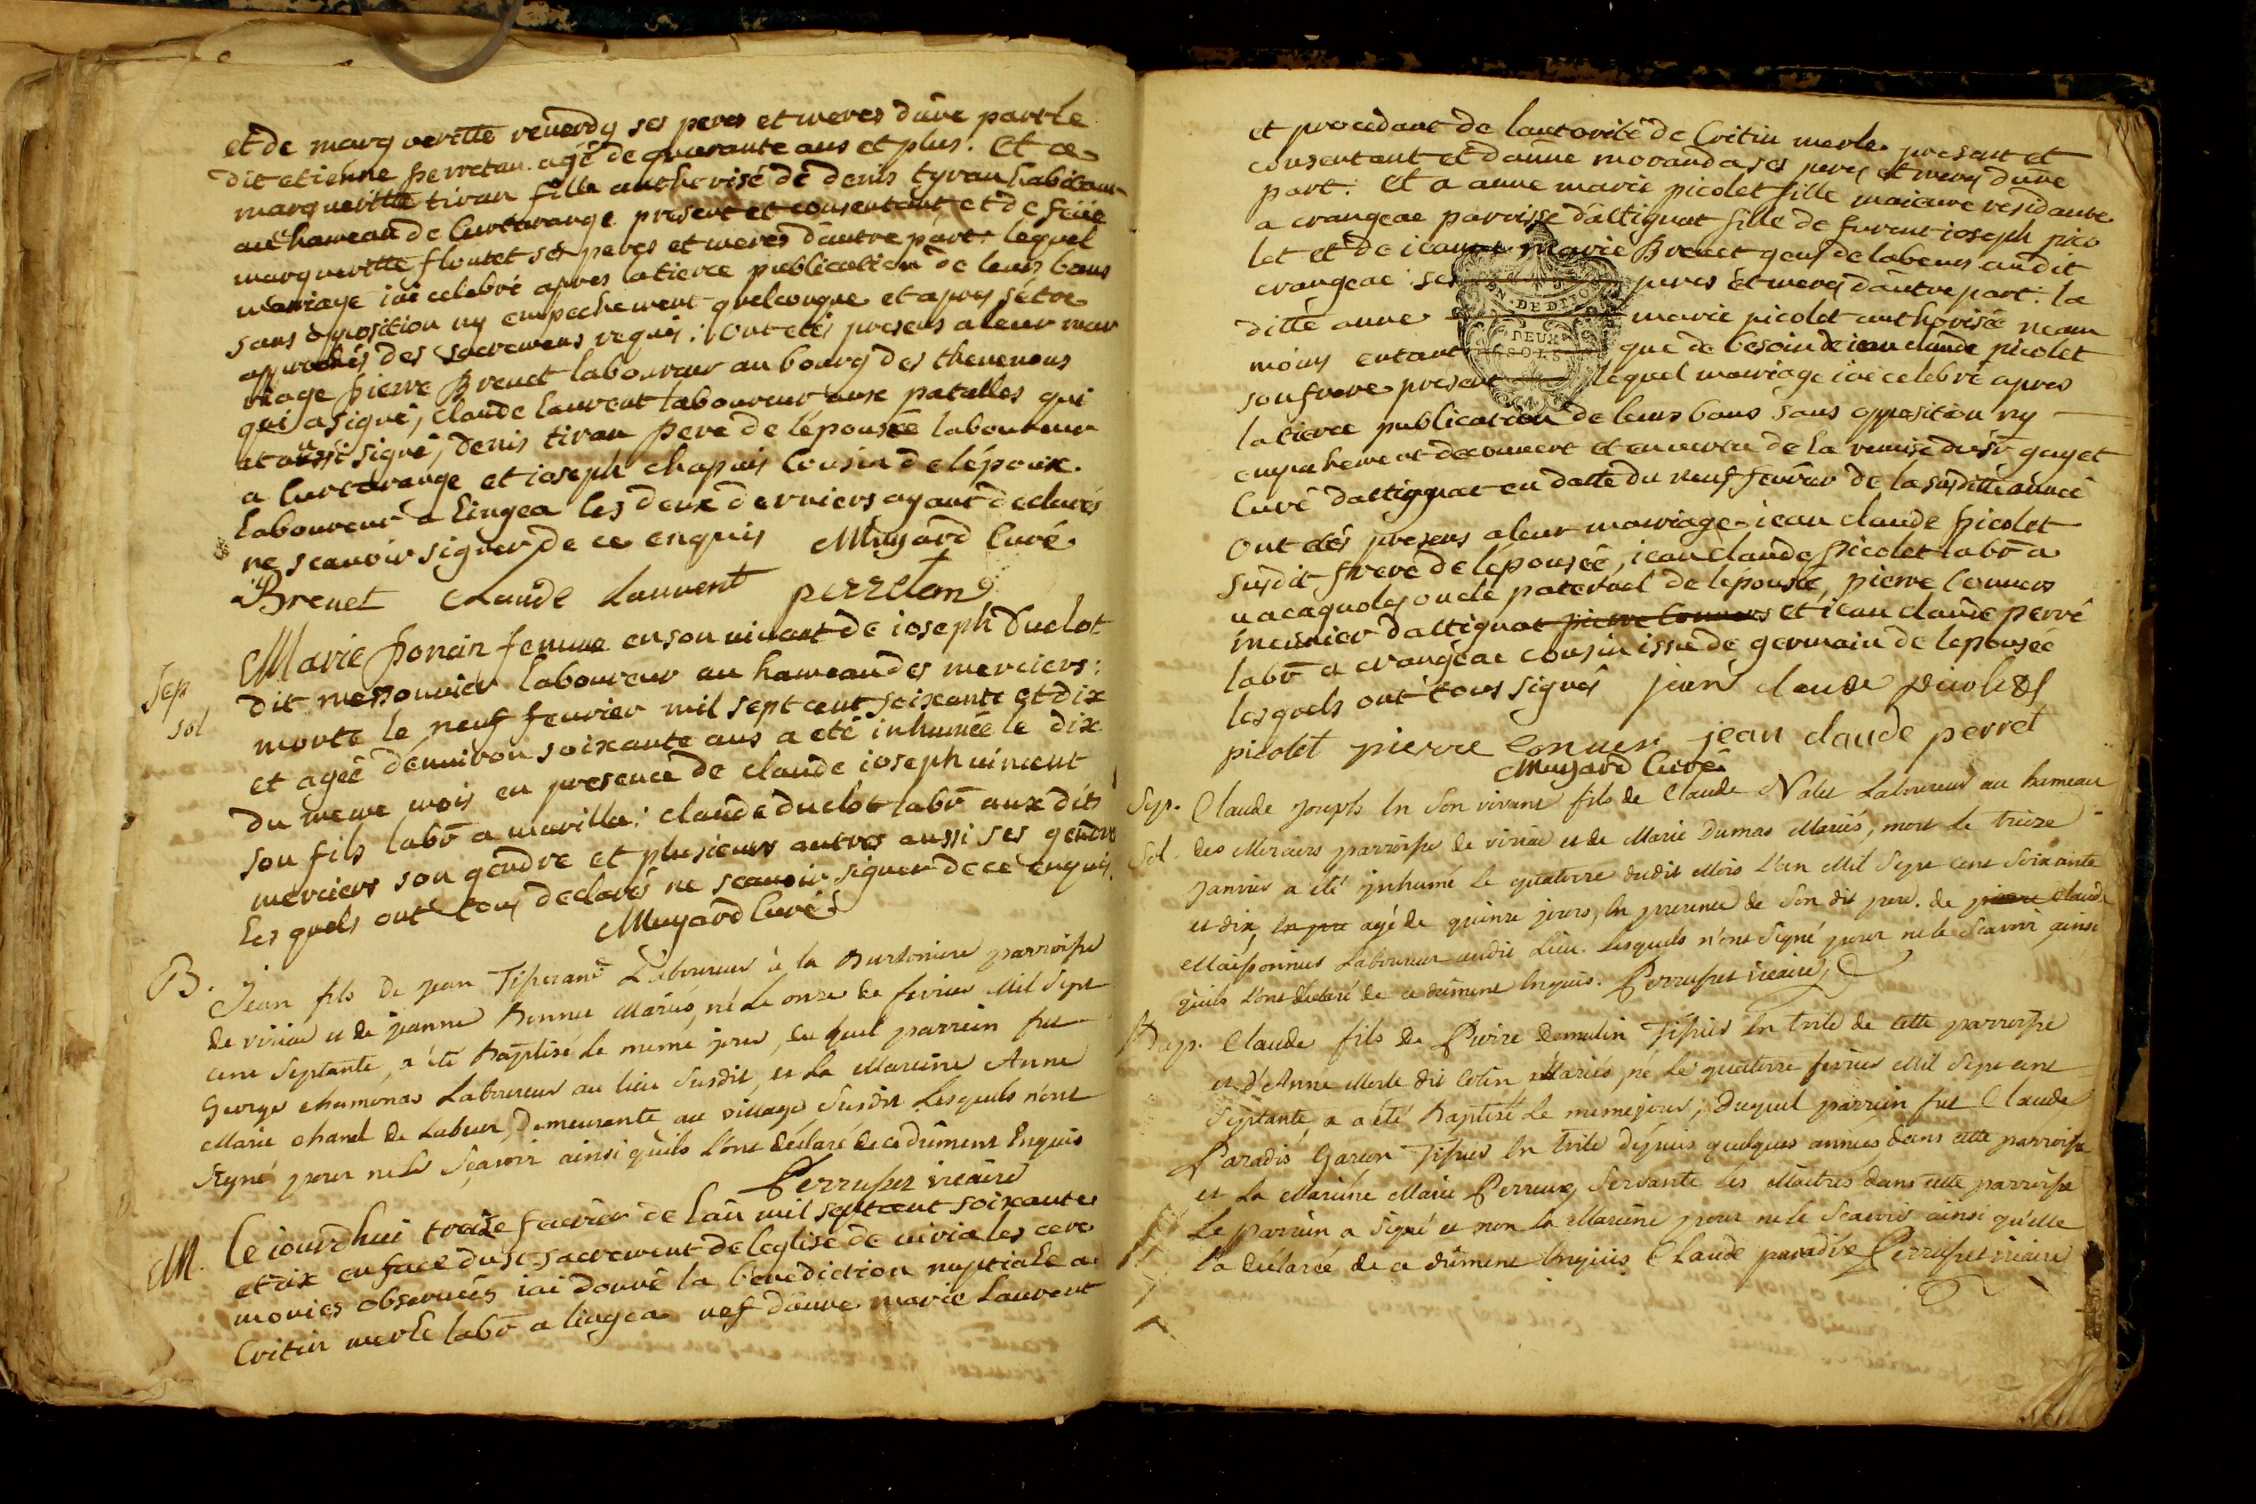 et de margueritte reverdy ses peres et meres d'une part le
dit etienne perretan agé de quarante ans et plus. Et a
marguerittte tiran fille autherisé de denis tyran habitant
au hameau de Curtarange present et consentant et de feüe
marguerittte floutet ses peres et meres d'autre part. lequel
mariage iai celebré apres la tierce publication de leurs bans
sans oposition ny empechement quelconque et apres s'etre
approchés des sacremens requis. ont etés presens a leur mar
riage pierre Brevet laboureur au bourg des thevenons
qui a signé, claude laurent laboureur aux patalles qui
at aussi signé, denis tiran pere de l'épousée laboureur
a Curtarange et ioseph chapuis Cousin de lépoux.
laboureur a lingea les deux derniers ayant declarés
ne scavoir signer de ce enquis Mugard Curé.
Brevet Claude Laurent perretan
Sep
sol
Marie ponein femme en son vivant de ioseph Duclot
dit messonnier laboureur au hameau des merciers:
morte le neuf fevrier mil sept cent soixante et dix
et agée d'environ soixante ans a été inhumée le dix
du meme mois en presence de claude ioseph vincent
son fils labr a marilla: claude duclot labr aux dits
merciers son gendre et plusieurs autres aussi ses gendre
lesquels ont tous declarés ne scavoir signer de ce enquis.
Mugard Curé
B. Jean fils de jean Tisserand Laboureur à la parroisse
de viriat et de jeanne Bonnet Mariés, né le onze de fevrier Mil Sept
cent Septante, a été Baptisé le meme jour, duquel parrein fut
George chamonas Laboureur au lieu Susdit, et la Mareine Anne
Marie chanel de Labeur, Demeurante au village Susdit Lesquels n'ont
signé pour ne le Sçavoir ainsi qu'ils l'ont déclaré de ce dument Enquis
Perrusset vicaire
M. Ce iourdhui treize fevrier de l'an mil sept cent soixante
et dix en face du st sacrement de leglise de viria les cere
monies observées iai donné la benediction nuptiale a
Critin merle labr a lingea nef d'anne marie laurent
et procedant de lautorité de Critin merle present et
consentant et d'anne moranda ses peres et meres d'une
part. Et a anne marie picolet fille maieure residante
a crangeac paroisse d'attignat fille de furent ioseph pico
let et de ieanne marie Brevet gens de labeur audit
crangeac ses peres et meres d'autre part. la
ditte anne marie picolet authorisée neam
moins entant que de besoin de iean claude picolet
son frere present lequel mariage iai celebré apres
la tierce publication de leurs bans sans opposition ny
empechement decouvert et en vertu de la remise du sr guyet
Curé d'attignat en datte du neuf fevrier de la susditte année
Ont etés presens a leur mariage iean claude picolet
susdit frere de lépousée, iean claude picolet labr a
oncle paternel de lépousée, pierre
meunier d'attignat pierre et iean claude perré
labr a crangeac cousin issu de germain de lepousée
lesquels ont tous signés jean claude picolet
picolet pierre jean claude perret
Mugard Curé
Sep.
Sol.
Claude joseph En Son vivant fils de Claude Nalet Laboureur au hameau
des Merciers parroisse de viriat et de Marie Dumas Mariés, mort le treize
janvier a été inhumé le quatorze dudit Mois L'an Mil Sept cent Soixante
et dix agé de quinze jours, En presence de Son dit pere. de pierre Claude
Maissonnier Laboureur audit Lieu. Lesquels n'ont Signé pour ne le Scavoir ainsi
qu'ils l'ont déclaré de ce dument Enquis. Perrusset vicaire
Bap. Claude fils de Pierre Demulin Tissier En toile de cette parroisse
et d'Anne Merle dit Cotin Mariés, né le quatorze fevrier Mil Sept cent
Septante, a a été Baptisé le meme jour, duquel parrein fut Claude
Paradis Garçon Tissier En toile depuis quelques années dans cette parroisse
et la Mareine Marie Perreux Servante Les Maitres dans cette parroisse
Le parrein a signé et non la Mareine pour ne le Scavoir ainsi qu'elle
l'a déclarée de ce dument Enquis. Claude paradis Perrusset vicaire
GEN. DE DIJON
DEUX
SOLS